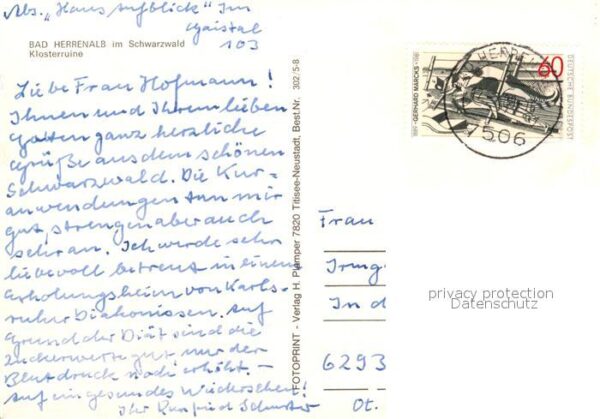 Abs. „Haus Aufblick" Im
Gaistal
103
BAD HERRENALB im Schwarzwald
Klosterruine
Liebe Frau Hofmann!
Ihnen und Ihrem lieben
Gatten ganz herzliche
Grüße aus dem schönen
Schwarzwald. Die Kur-
anwendungen tun mir
gut, strengen aber auch
sehr an. Ich werde sehr
liebevoll betreut in einem
Erholungsheim von Karls-
ruher Diakonissen. Auf
Grund der Diät sind die
Zuckerwerte gut nur der
Blutdruck noch erhöht. –
Auf ein gesundes Wiedersehen
Ihr
FOTOPRINT - Verlag H. Plamper 7820 Titisee-Neustadt, Best.Nr. 302/5-8
1889 GERHARD MARCKS 1981
60
DEUTSCHE BUNDESPOST
506
Frau
Irmg
In d
6293
Ot.
privacy protection
Datenschutz